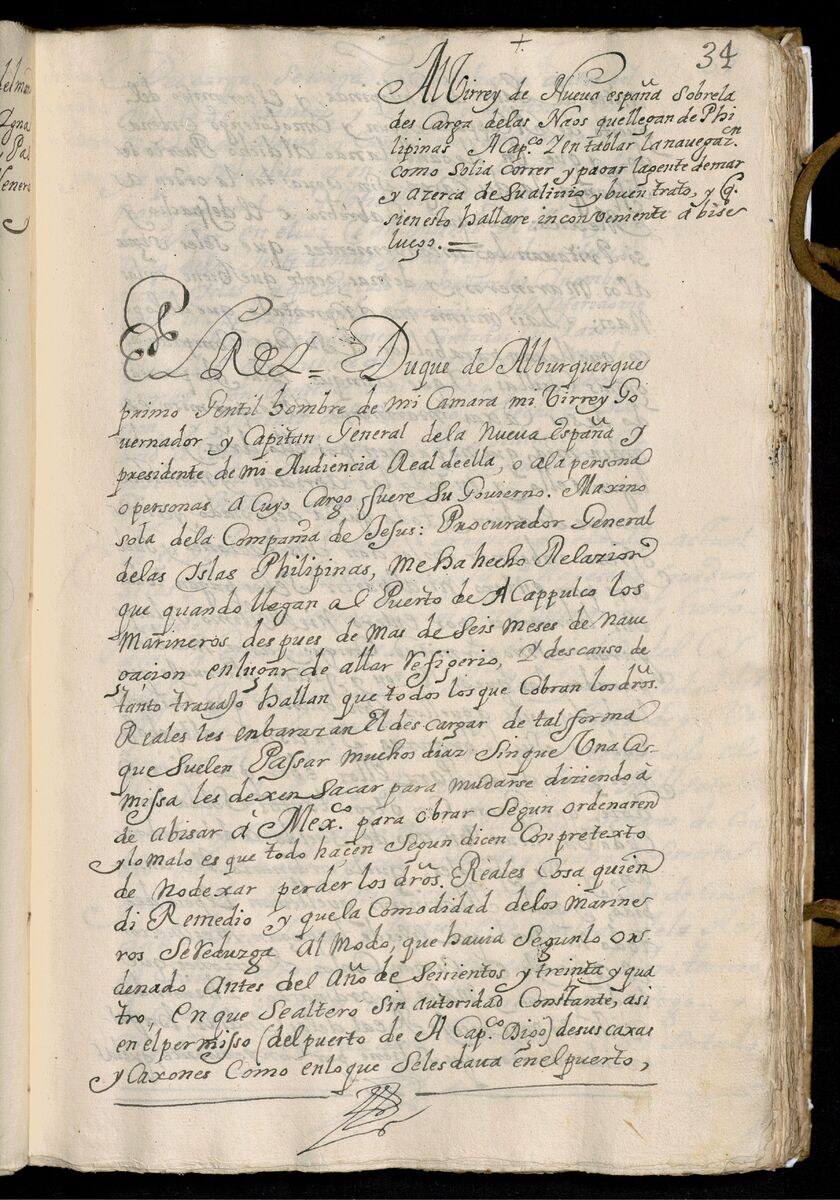 +
34
Al Virrey de Nueva españa Sobrela
des Carga delas Naos quellegan de Phi
lipinas A Cap.co Yen tablar lanavegaz.cn
como solia correr, y pagar lagente demar
y azerca de Sualinio, y buen trato, y q.
sienesto hallare inconveniente abise
luego. =
EL REI = Duque de Alburquerque
primo Gentil hombre de mi Camara mi Virrey Go
vernador y Capitan General dela Nueva España y
presidente de mi Audiencia Real deella, o ala persona
o personas a Cuyo Cargo fuere Su Govierno. Maxino
sola dela Compama de Jesus: Procurador General
delas Islas Philipinas, me ha hecho Relazion
que quando llegan al Puerto de ACappulco los
Marineros despues de Mas de Seis Meses de Nave
gacion enlugar de allar refigerio, Y descanso de
tanto travajo hallan que todos los que Cobran los dros.
Reales les enbarazan El des cargar de tal forma
que Suelen Passar muchos diaz Sinque Una Ca-
missa les dexen Sacar para mudarse diziendo à
de abisar à Mex.co para obrar Segun ordenaren
y lo malo es que todo haçen Segun dicen Conpretexto
de nodexar perder los dros. Reales Cosa quien
di Remedio y quela Comodidad delos Marine
ros Sereduzga Al Modo, que havia Segunlo or-
denado Antes del Año de Seisientos y treinta y qua
tro, En que Sealteró Sin autoridad Constante, asi
en el permisso (del puerto de A Cap.co Digo) desus caxas
y Caxones Como enloque Seles dava en el puerto,